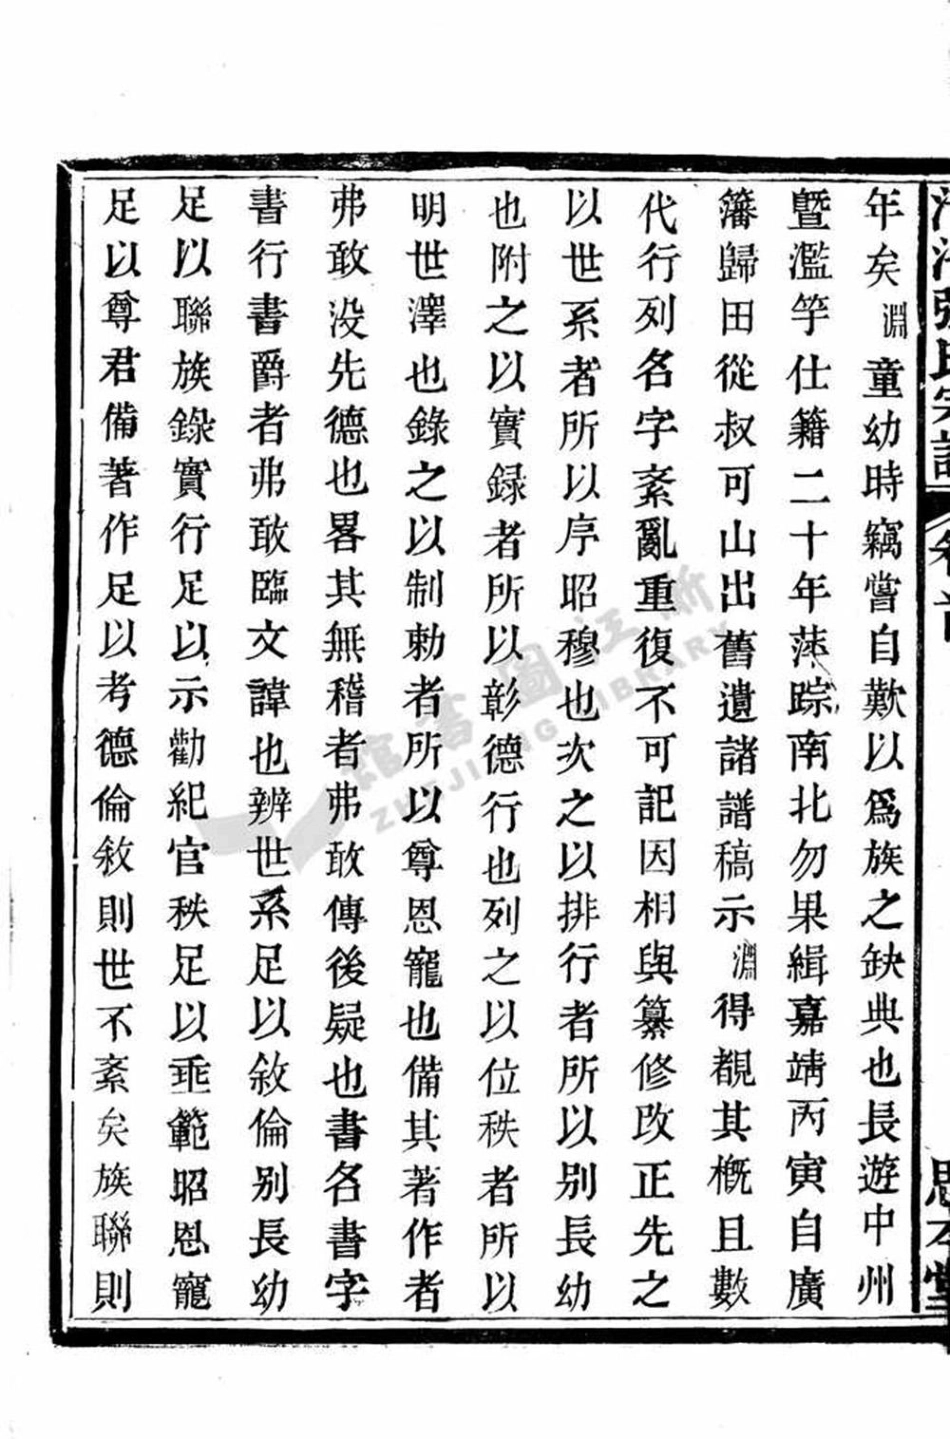 年矣淵童幼時竊嘗自歎以爲族之缺典也長遊中州
暨濫竽仕籍二十年萍踪南北勿果緝嘉靖丙寅自廣
籓歸田從叔可山出舊遺諸譜稿示淵得覩其槪且數
代行列名字紊亂重復不可記因相與纂修改正先之
以世系者所以序昭穆也次之以排行者所以别長幼
也附之以實録者所以彰德行也列之以位秩者所以
明世澤也錄之以制勅者所以尊恩寵也備其著作者
弗敢没先德也畧其無稽者弗敢傳後疑也書名書字
書行書爵者弗敢臨文諱也辨世系足以敘倫别長幼
足以聯族錄實行足以示勸紀官秩足以垂範昭恩寵
足以尊君備著作足以考德倫敘則世不紊矣族聯則
浙江圖書館
ZHEJIANG LIBRARY